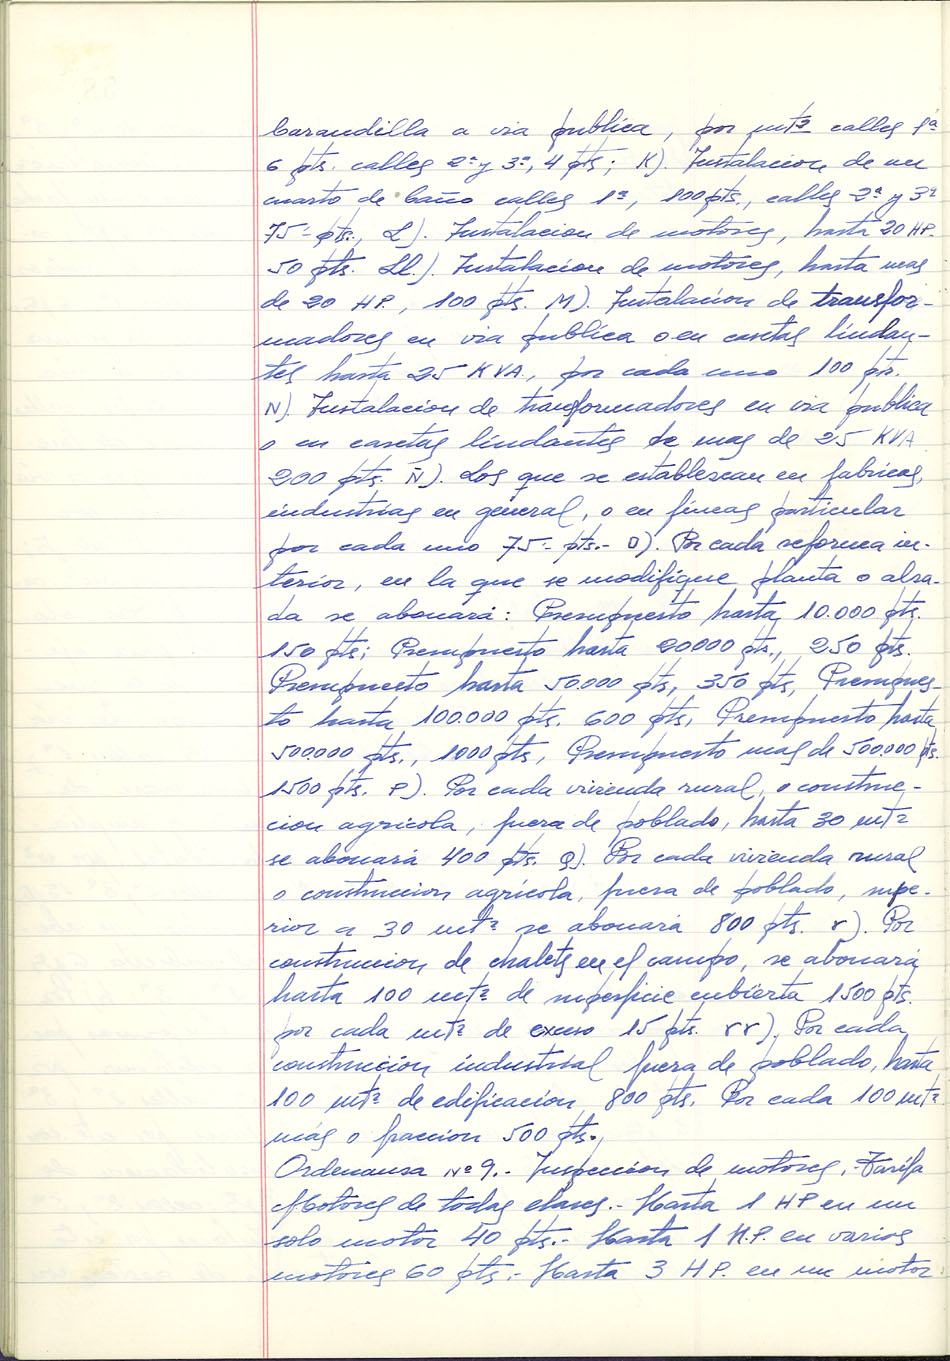 barandilla a via publica, por mt² calles 1ª
6 pts. calles 2ª y 3ª, 4 pts; K). Instalacion de un
cuarto de baño calles 1ª, 100 pts., calles 2ª y 3ª
75- pts., L). Instalacion de motores, hasta 20 HP.
50 pts. Ll.). Instalacion de motores, hasta mas
de 20 HP., 100 pts. M). Instalacion de transfor-
madores en via publica o en casetas lindan-
tes hasta 25 KVA., por cada uno 100 pts.
N). Instalacion de transformadores en via publica
o en casetas lindantes de mas de 25 KVA
200 pts. Ñ). Los que se establezcan en fabricas,
industrias en general, o en fincas particular
por cada uno 75- pts.- O). Por cada reforma in-
terior, en la que se modifique planta o alza-
da se abonará: Presupuesto hasta 10.000 pts.
150 pts; Presupuesto hasta 20000 pts., 250 pts.
Presupuesto hasta 50.000 pts, 350 pts, Presupues-
to hasta 100.000 pts. 600 pts, Presupuesto hasta
500.000 pts., 1000 pts, Presupuesto mas de 500.000 pts.
1500 pts. P). Por cada vivienda rural, o construc-
cion agricola, fuera de poblado, hasta 30 mt²
se abonará 400 pts. Q). Por cada vivienda rural
o construccion agricola, fuera de poblado, supe-
rior a 30 mt² se abonará 800 pts. r). Por
construccion de chalets en el campo, se abonará
hasta 100 mt² de superficie cubierta 1500 pts.
por cada mt² de exceso 15 pts. rr). Por cada
construcion industrial fuera de poblado, hasta
100 mt² de edificacion 800 pts. Por cada 100 mt²
más o fraccion 500 pts.,
Ordenansa Nº 9.- Inspeccion de motores.- Tarifa
Motores de todas clases.- Hasta 1 HP en un
solo motor 40 pts.- Hasta 1 H.P. en varios
motores 60 pts.- Hasta 3 HP. en un motor